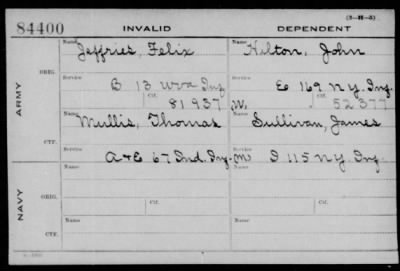 (3-H-3)
84400 INVALID DEPENDENT
Name Name
Jeffries, Felix Hilton, John
ORIG. Service Service
B 13 Wva Inf E 169 N.Y. Inf.
Ctf. Ctf.
ARMY 81937 W. 52377
Name Name
Mullis, Thomas Sullivan, James
CTF. Service Service
A & E 67 Ind. Inf. M I 115 N.Y. Inf.
Name Name
ORIG.
Service Ctf. Service Ctf.
NAVY
Name Name
CTF.
Service Service